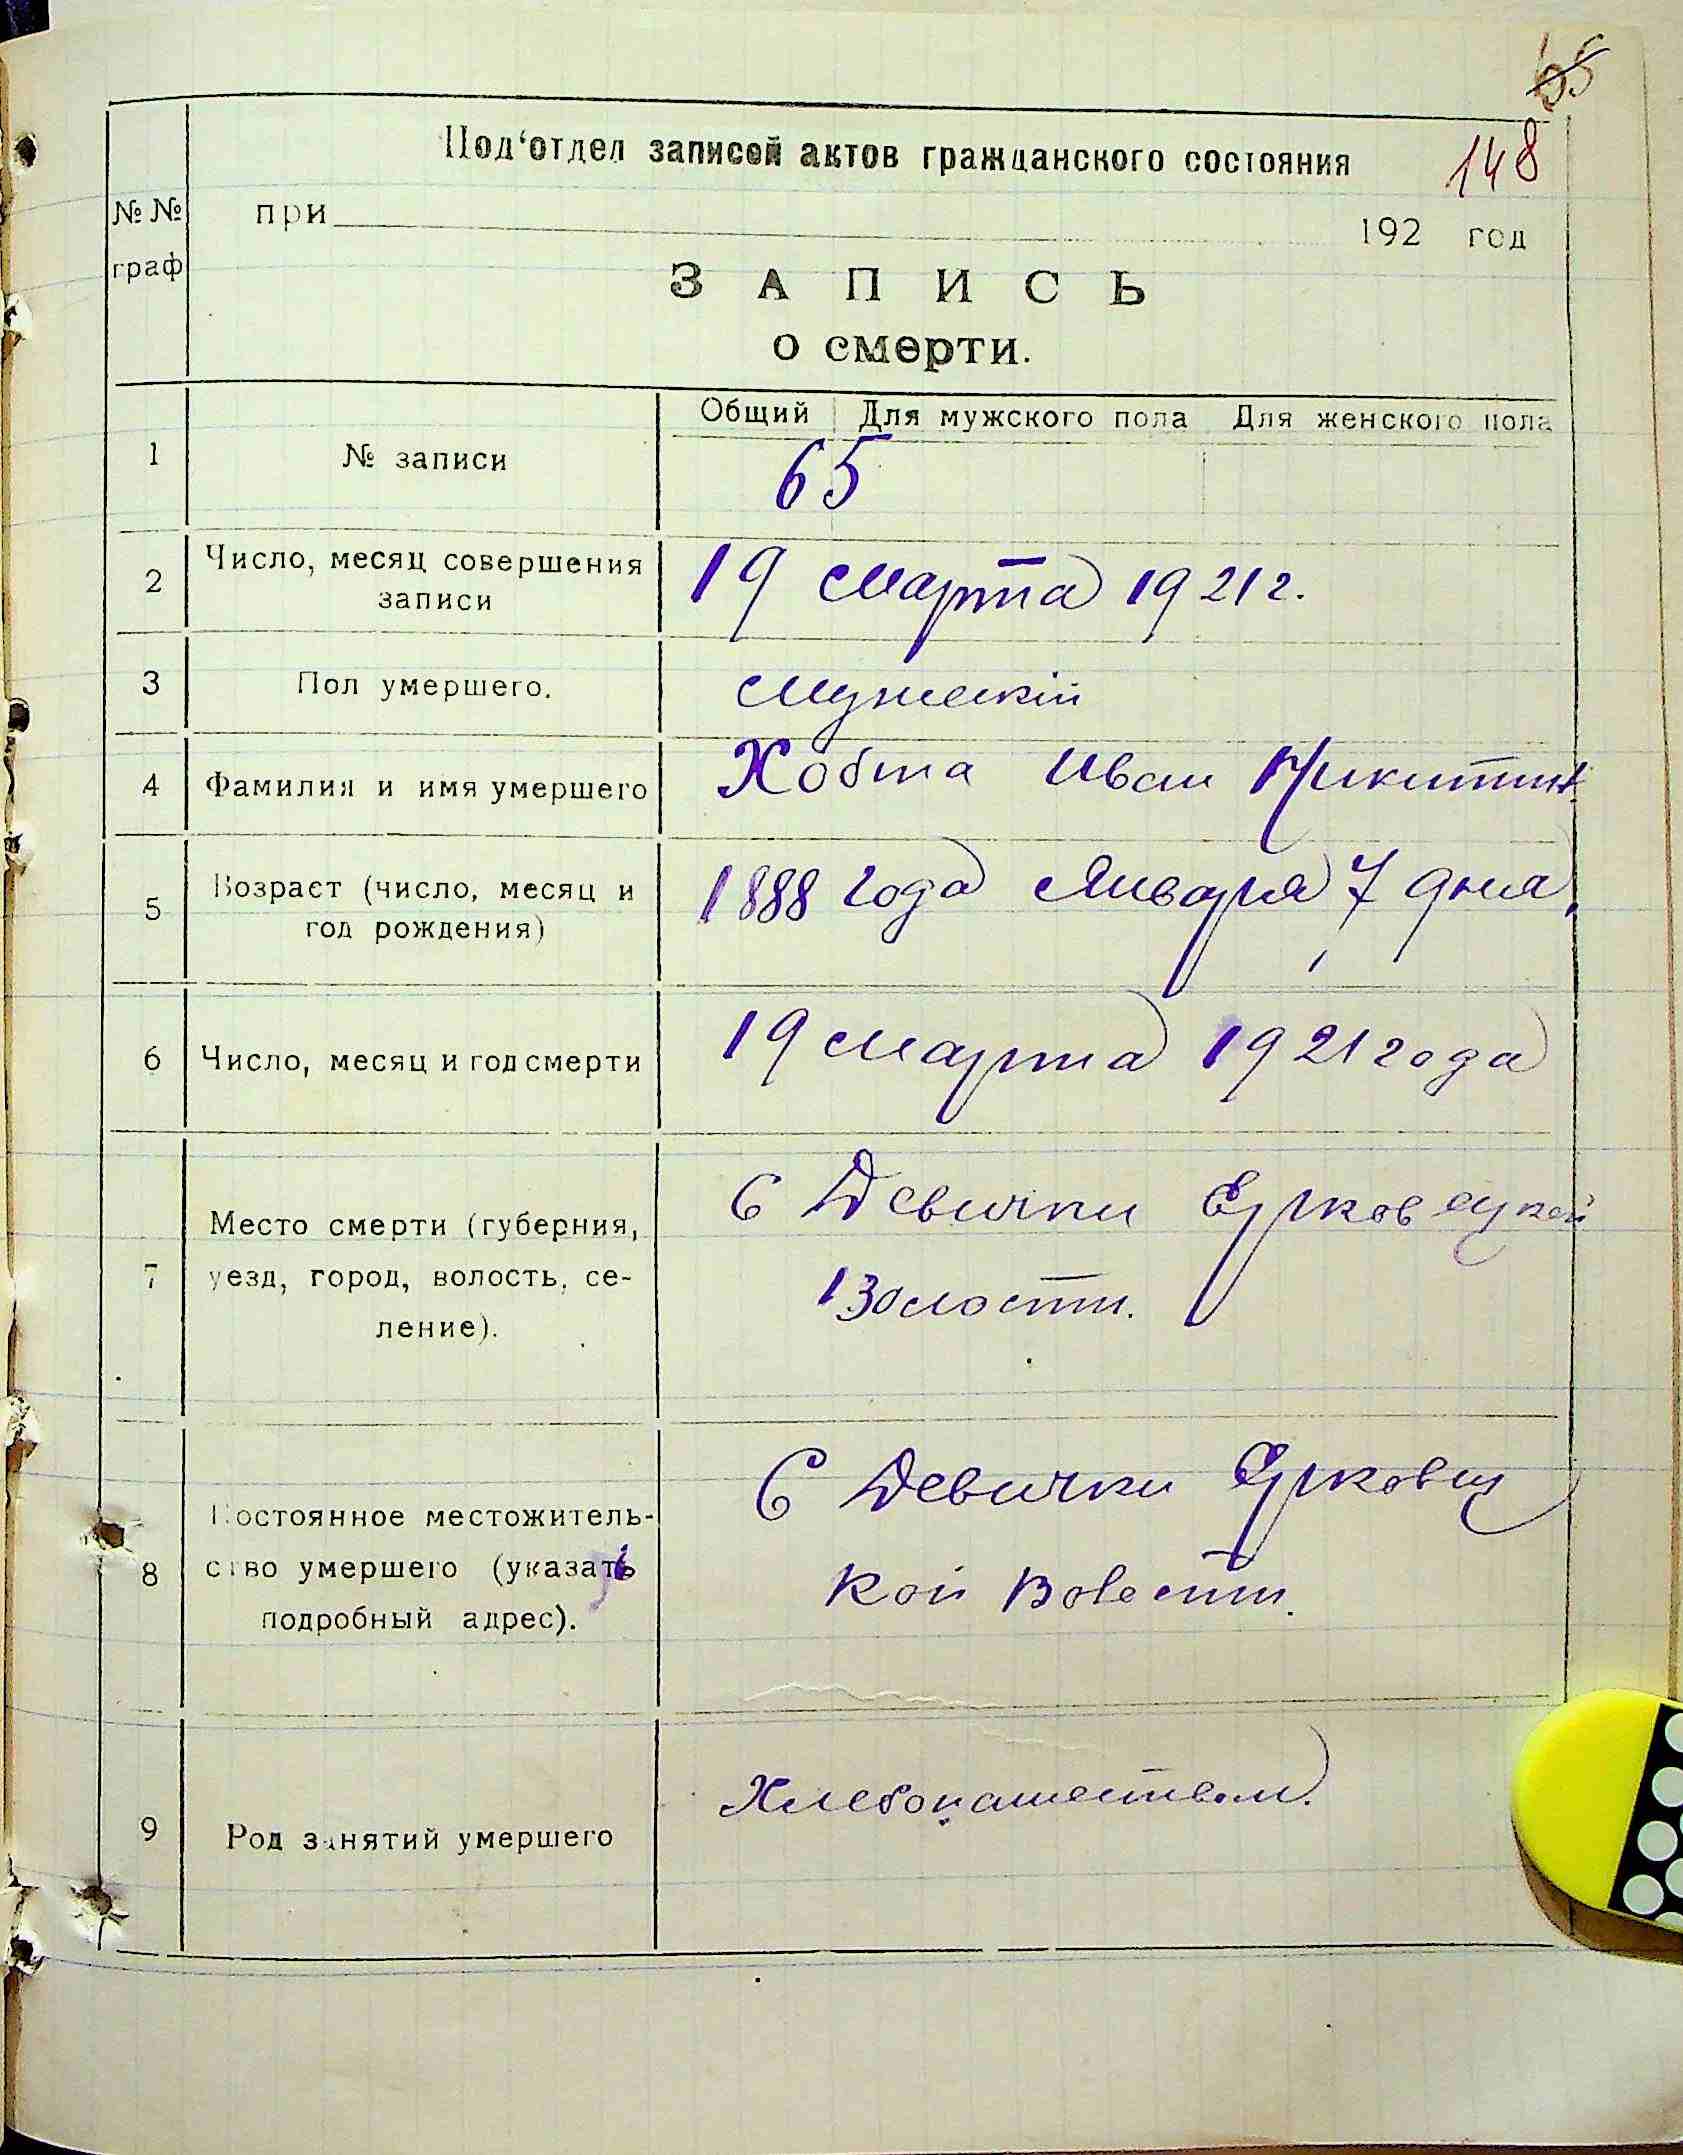 65
148
Под'отдел записей актов гражданского состояния
при 192 год
№ № граф
ЗАПИСЬ
о смерти.
Общий Для мужского пола Для женского пола
1 № записи 65
2 Число, месяц совершения
записи
19 Марта 1921 г.
3 Пол умершего. Мужескій
4 Фамилия и имя умершего Хобта Иван Никитин
5 Возраст (число, месяц и
год рождения)
1888 года Января 7 дня
6 Число, месяц и год смерти 19 Марта 1921 года
7 Место смерти (губерния,
уезд, город, волость, се-
ление).
С Девички Ерковецкой
Волости.
8 Постоянное местожитель-
ство умершего (указать
подробный адрес).
С Девички Ерковец
кой Волости.
9 Род занятий умершего Хлебопашеством.